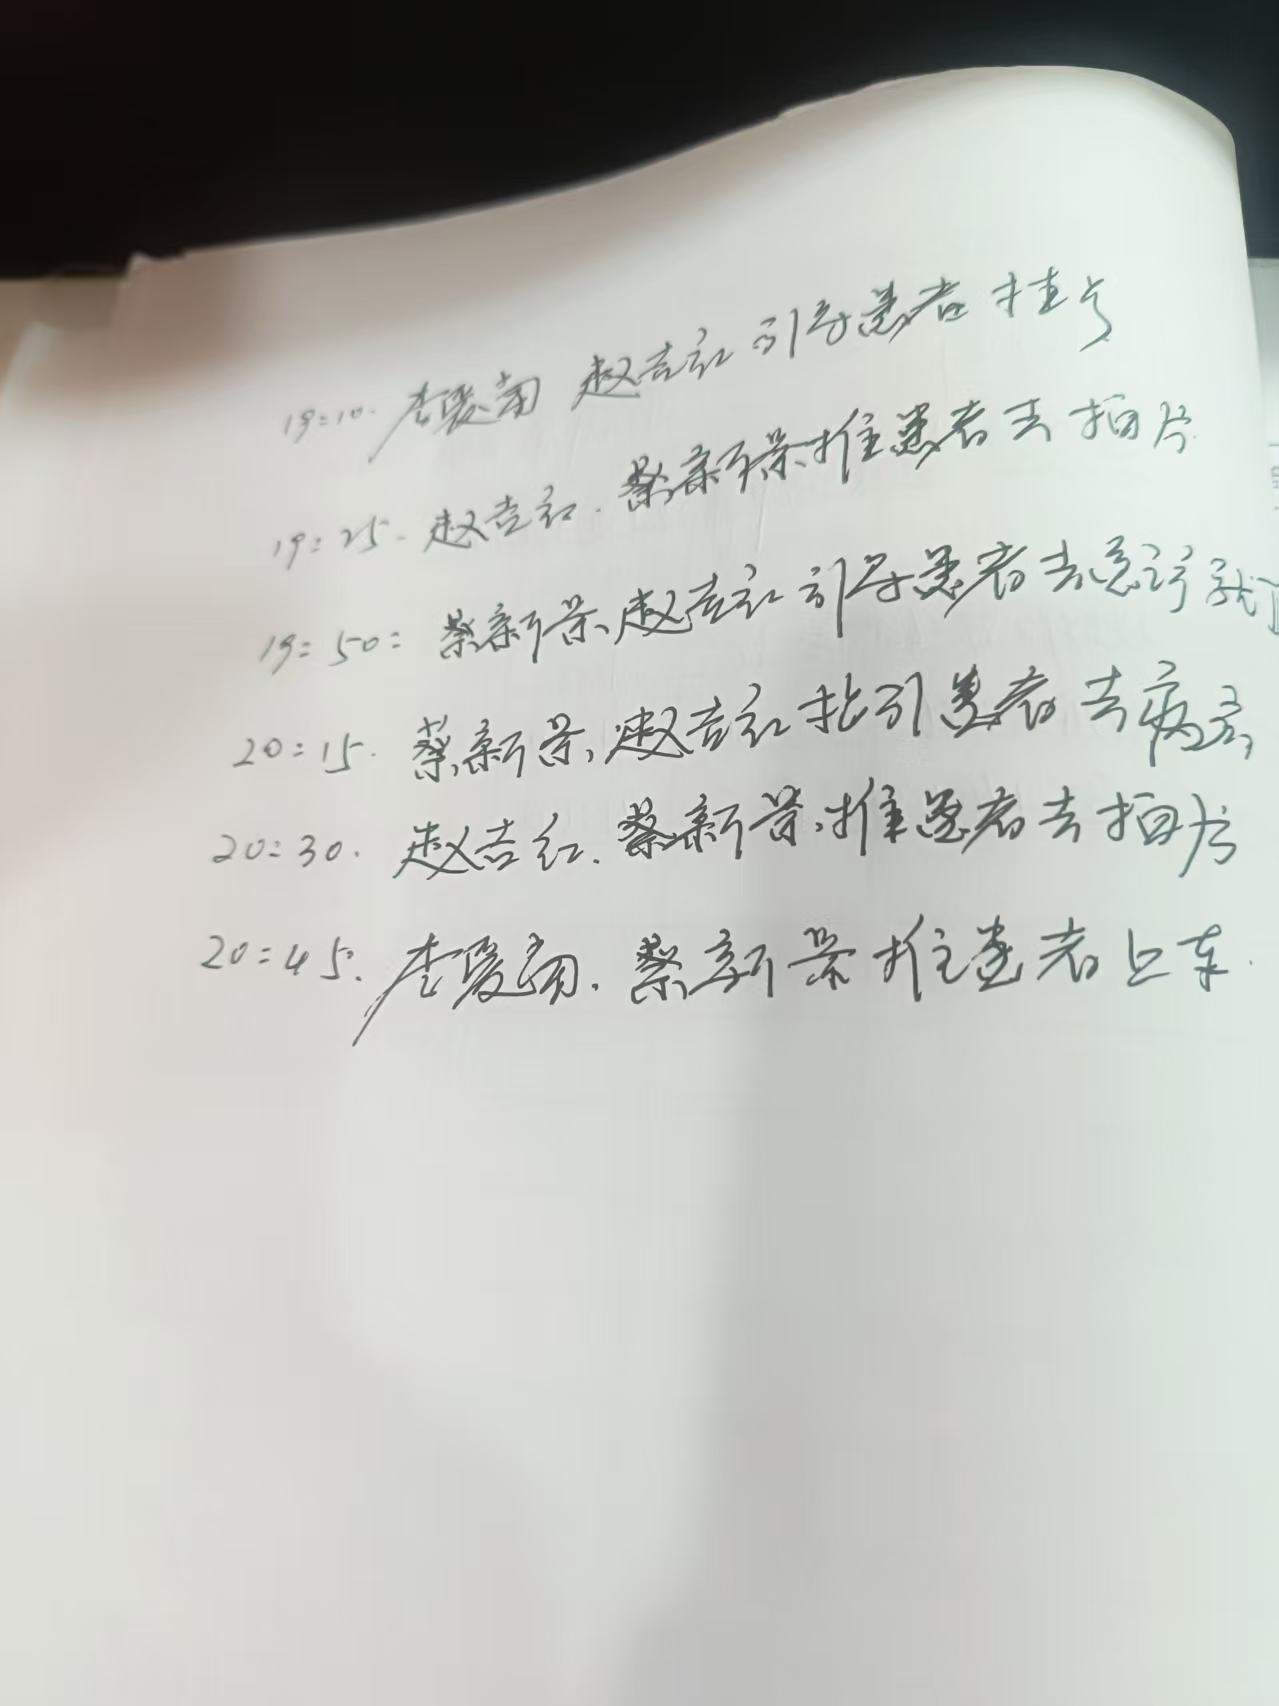 19:10. 李爱菊 赵吉红 引导患者挂号
19:25. 赵吉红. 蔡新荣推患者去拍片
19:50: 蔡新荣、赵吉红引导患者去急诊就
20:15. 蔡新荣、赵吉红指引患者去病房
20:30. 赵吉红. 蔡新荣.推患者去拍片
20:45. 李爱菊. 蔡新荣推患者上车.